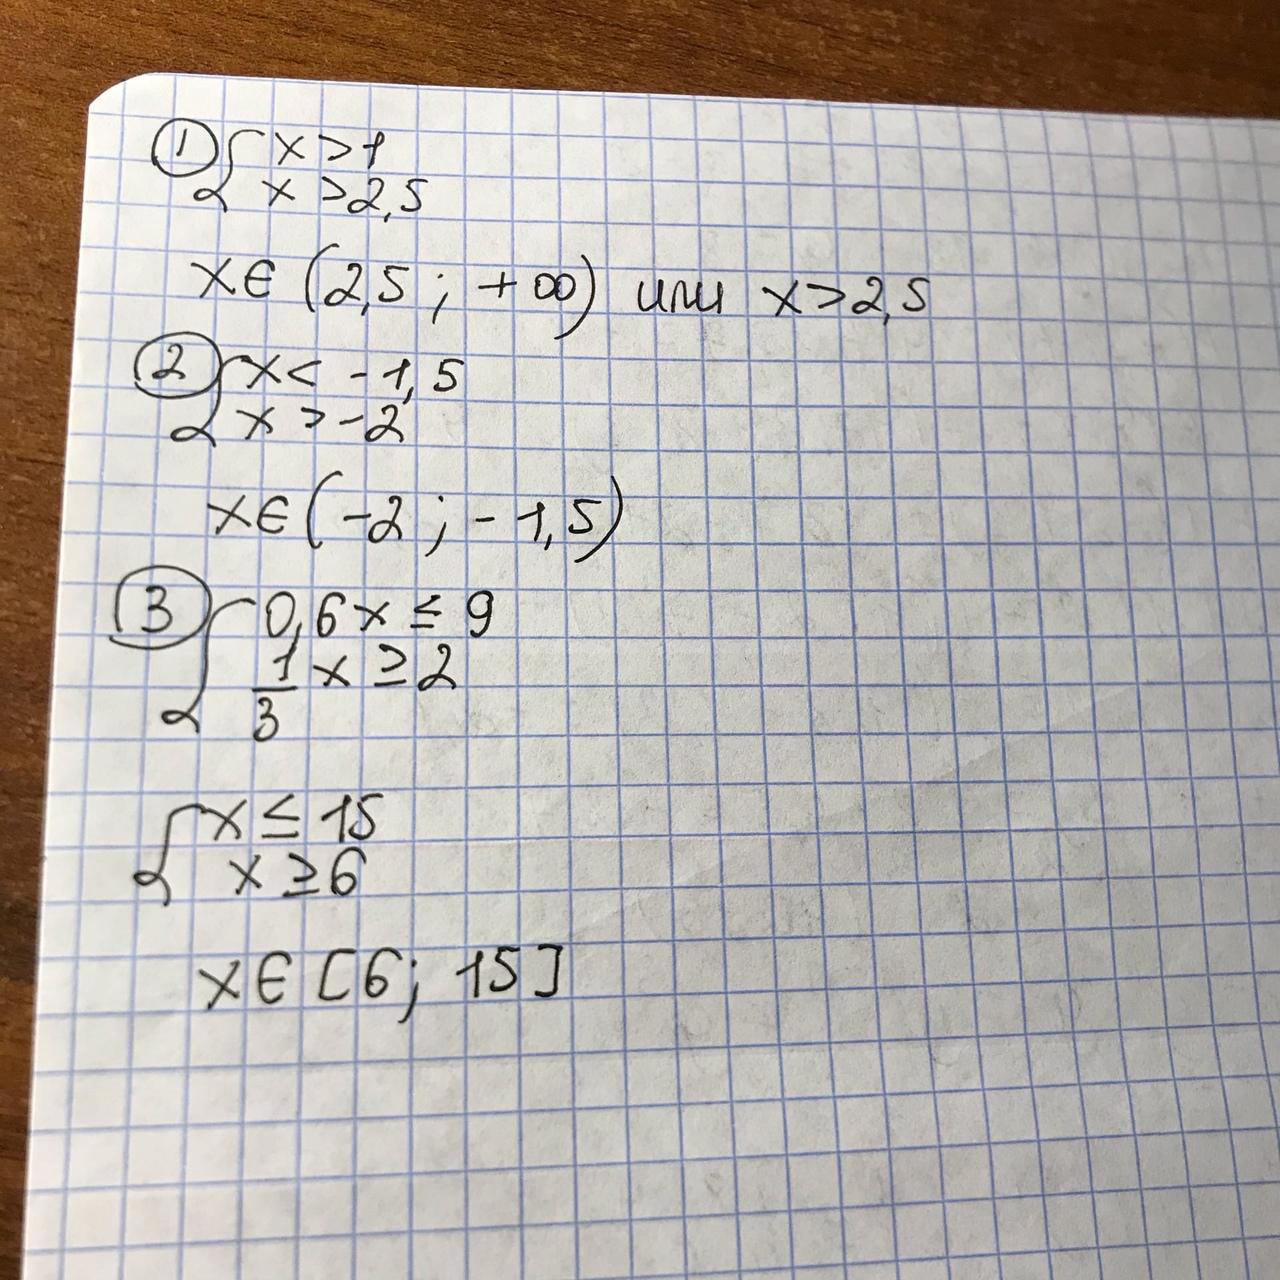 ① { x > 1
x > 2,5
x ∈ (2,5 ; +∞) или x > 2,5
② { x < -1,5
x > -2
x ∈ (-2 ; -1,5)
③ { 0,6x ≤ 9
1/3 x ≥ 2
{ x ≤ 15
x ≥ 6
x ∈ [6; 15]